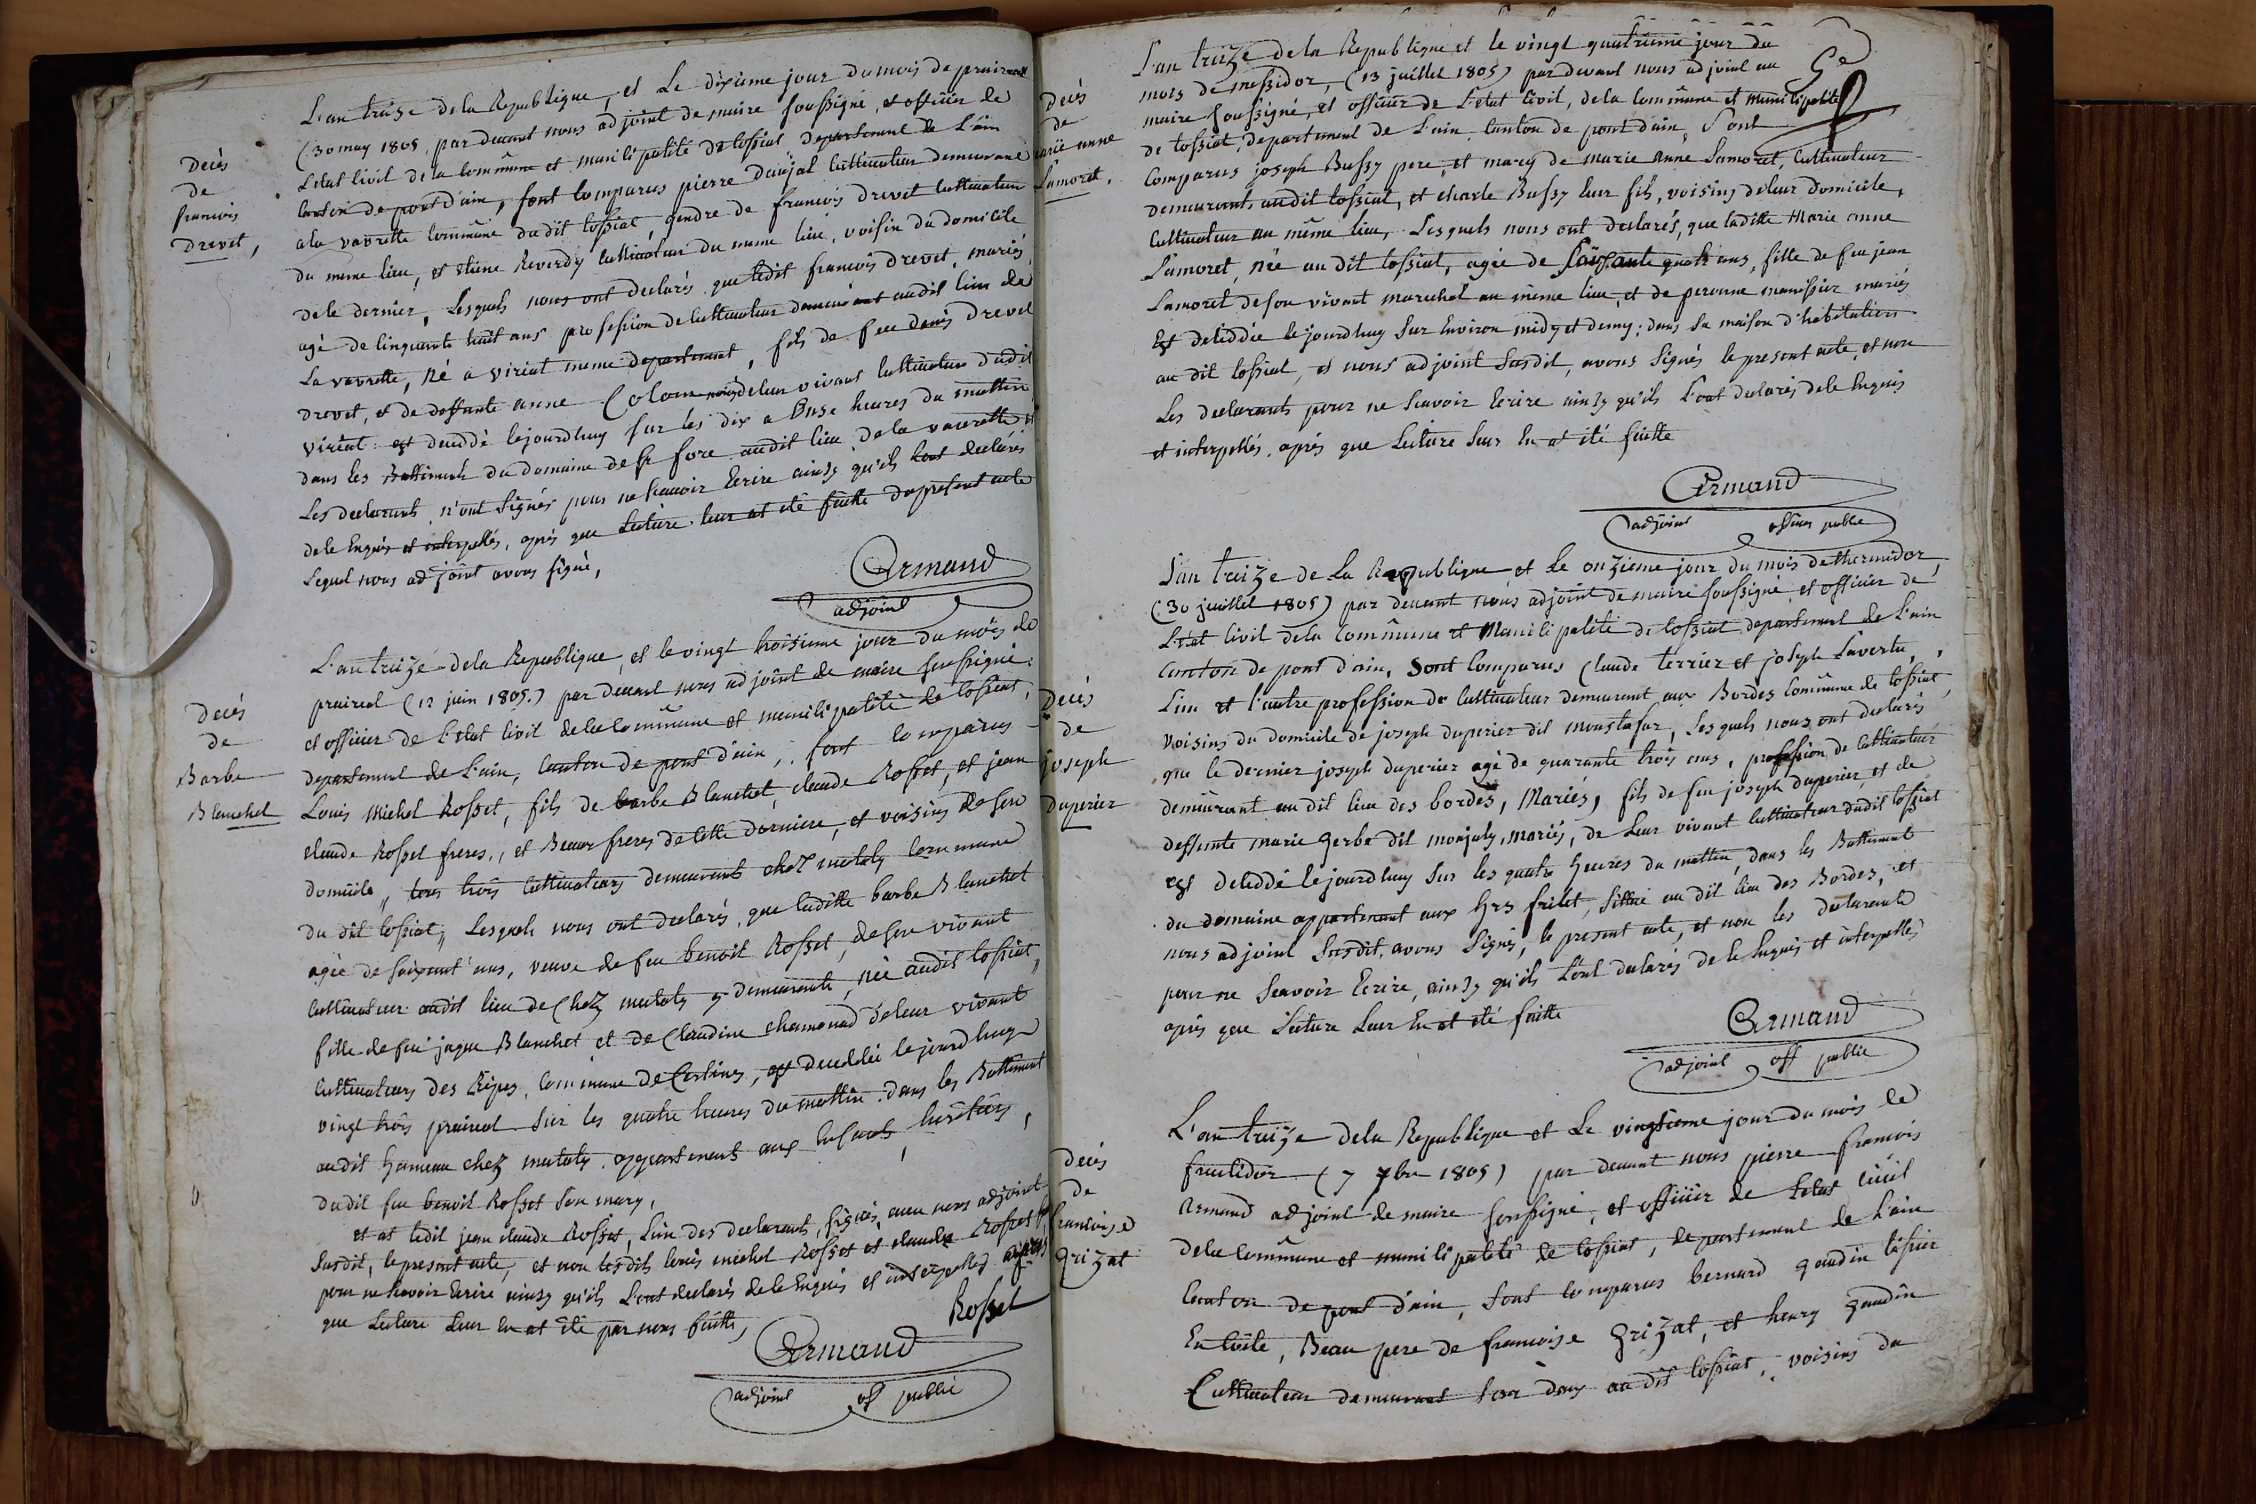 Decès
de
francois
drevet,
L'an treize de la Republique, et Le dixieme jour du mois de prairial
(30 may 1805, par devant nous adjoint de maire soussigné, et officier de
L'etat Civil de la commune et municipalité de tossiat departement de L'ain
canton de pont d'ain, sont comparus pierre daujat cultivateur demeurant
a la vavrette commune dudit tossiat, gendre de francois drevet cultivateur
du meme lieu, et etiene Reverdy cultivateur du meme lieu, voisin du domicile
de le dernier, Lesquels nous ont declarés que ledit francois drevet, mariés
agé de cinquante huit ans profession de cultivateur demeurant audit lieu de
La vavrette, né a viriat meme departement, fils de feu denis drevet
drevet, et de deffunte anne Colom mariés de leur vivant cultivateur dudit
viriat: est deceddé cejourdhuy sur les dix a onse heures du mattin
dans les Battiments du domaine de fore audit lieu de la vavrette et
Les declarants n'ont signés pour ne scavoir Ecrire ainsy qu'ils l'ont declarés
de le Enquis et interpellés, après que Lecture leur at eté faitte du present acte
Lequel nous adjoint avons signé,
Armand
adjoint
Decès
de
Barbe
Blanchet
L'an treize de la Republique, et le vingt troisieme jour du mois de
prairial (12 juin 1805.) par devant nous adjoint de maire soussigné:
et officier de L'etat Civil de la commune et municipalité de tossiat,
departement de L'ain, Canton de pont d'ain, sont comparus
Louis Michel Rosset, fils de barbe Blanchet, claude Rosset, et jean
claude Rosset freres, et Beaux freres de cette derniere, et voisins de son
domicile, tous trois cultivateurs demeurants chez mutaly commune
du dit tossiat, Lesquels nous ont declarés, que laditte barbe Blanchet
agée de soixant' ans, veuve de feu benoit Rosset, de son vivant
cultivateur audit lieu de Chez mutaly y demeurante, née audit tossiat,
fille de feu jaque Blanchet et de Claudine chamonad de leur vivant
cultivateurs des Ripes, commune de Certines, est deceddée le jourdhuy
vingt trois prairial sur les quatre heures du mattin dans les Battiment
audit hameau chez mutaly appartenants aux enfants heritiers,
dudit feu benoit Rosset son mary,
et at ledit jean claude Rosset, l'un des declarants, signés, avec nous adjoint
susdit, le present acte, et non lesdits louis michel Rosset et claude Rosset
pour ne scavoir Ecrire ainsy qu'ils L'ont declarés de le Enquis et interpellés après
que Lecture Leur En at eté par nous faitte,
Rosset
Armand
adjoint off public
Decès
de
marie anne
Lamoret.
5e
L'an treize de la Republique et le vingt quatrieme jour du
mois de messidor, (13 juillet 1805) par devant nous adjoint au
maire soussigné, et officier de L'etat Civil, de la Commune et municipalité
de tossiat, departement de L'ain canton de pont d'ain, sont
Comparus joseph Bussy pere, et mary de marie anne Lamoret, Cultivateur
demeurant audit tossiat, et charle Bussy leur fils, voisins de leur domicile,
Cultivateur au même lieu, Lesquels nous ont declarés, que laditte Marie anne
Lamoret, née au dit tossiat, agée de soixante quatre ans, fille de feu jean
Lamoret de son vivant marechal au même lieu, et de peronne manissier mariés
Est deceddée le jourdhuy sur Environ midy et demy; dans sa maison d'habitation
au dit tossiat, et nous adjoint susdit, avons signés le present acte, et non
Les declarants pour ne scavoir Ecrire ainsy qu'ils l'ont declarés de le Enquis
et interpellés, après que Lecture leur En at eté faitte
Armand
adjoint officier public
Decès
de
joseph
duperier
L'an treize de La Republique et Le onzieme jour du mois de thermidor,
(30 juillet 1805) par devant nous adjoint de maire soussigné et officier de
L'etat Civil de la Commune et Municipalité de tossiat departement de L'ain
Canton de pont d'ain, Sont Comparus Claude terrier et joseph Lavertu,
L'un et l'autre profession de Cultivateur demeurant aux Bordes Commune de tossiat,
voisins du domicile de joseph duperier dit moustafar, Lesquels nous ont declarés
que le dernier joseph duperier agé de quarante trois ans, profession de Cultivateur
demeurant au dit lieu des bordes, Mariés, fils de feu joseph duperier, et de
deffunte marie gerbe dit monjuly, mariés, de Leur vivant Cultivateur dudit tossiat
est deceddé lejourdhuy sur les quatre heures du mattin, dans les Battiment
du domaine appartenant aux hrs frilet, Sittué au dit lieu des Bordes, et
nous adjoint susdit, avons signés, le present acte, et non les declarants
pour ne Scavoir Ecrire, ainsy qu'ils L'ont declarés de le Enquis et interpellés
après que Lecture Leur En at eté faitte
Armand
adjoint off public
decès
de
francoise
Grizat
L'an treize de la Republique et Le vingtieme jour du mois de
fructidor (7 7bre 1805) par devant nous pierre francois
Armand adjoint de maire soussigné, et officier de L'etat Civil
de la Commune et municipalité de tossiat, departement de L'ain
Canton de pont d'ain, sont comparus bernard gaudin tissier
En toile, Beau pere de francoise Grizat, et henry gaudin
Cultivateur demeurant tous deux au dit tossiat, voisins du